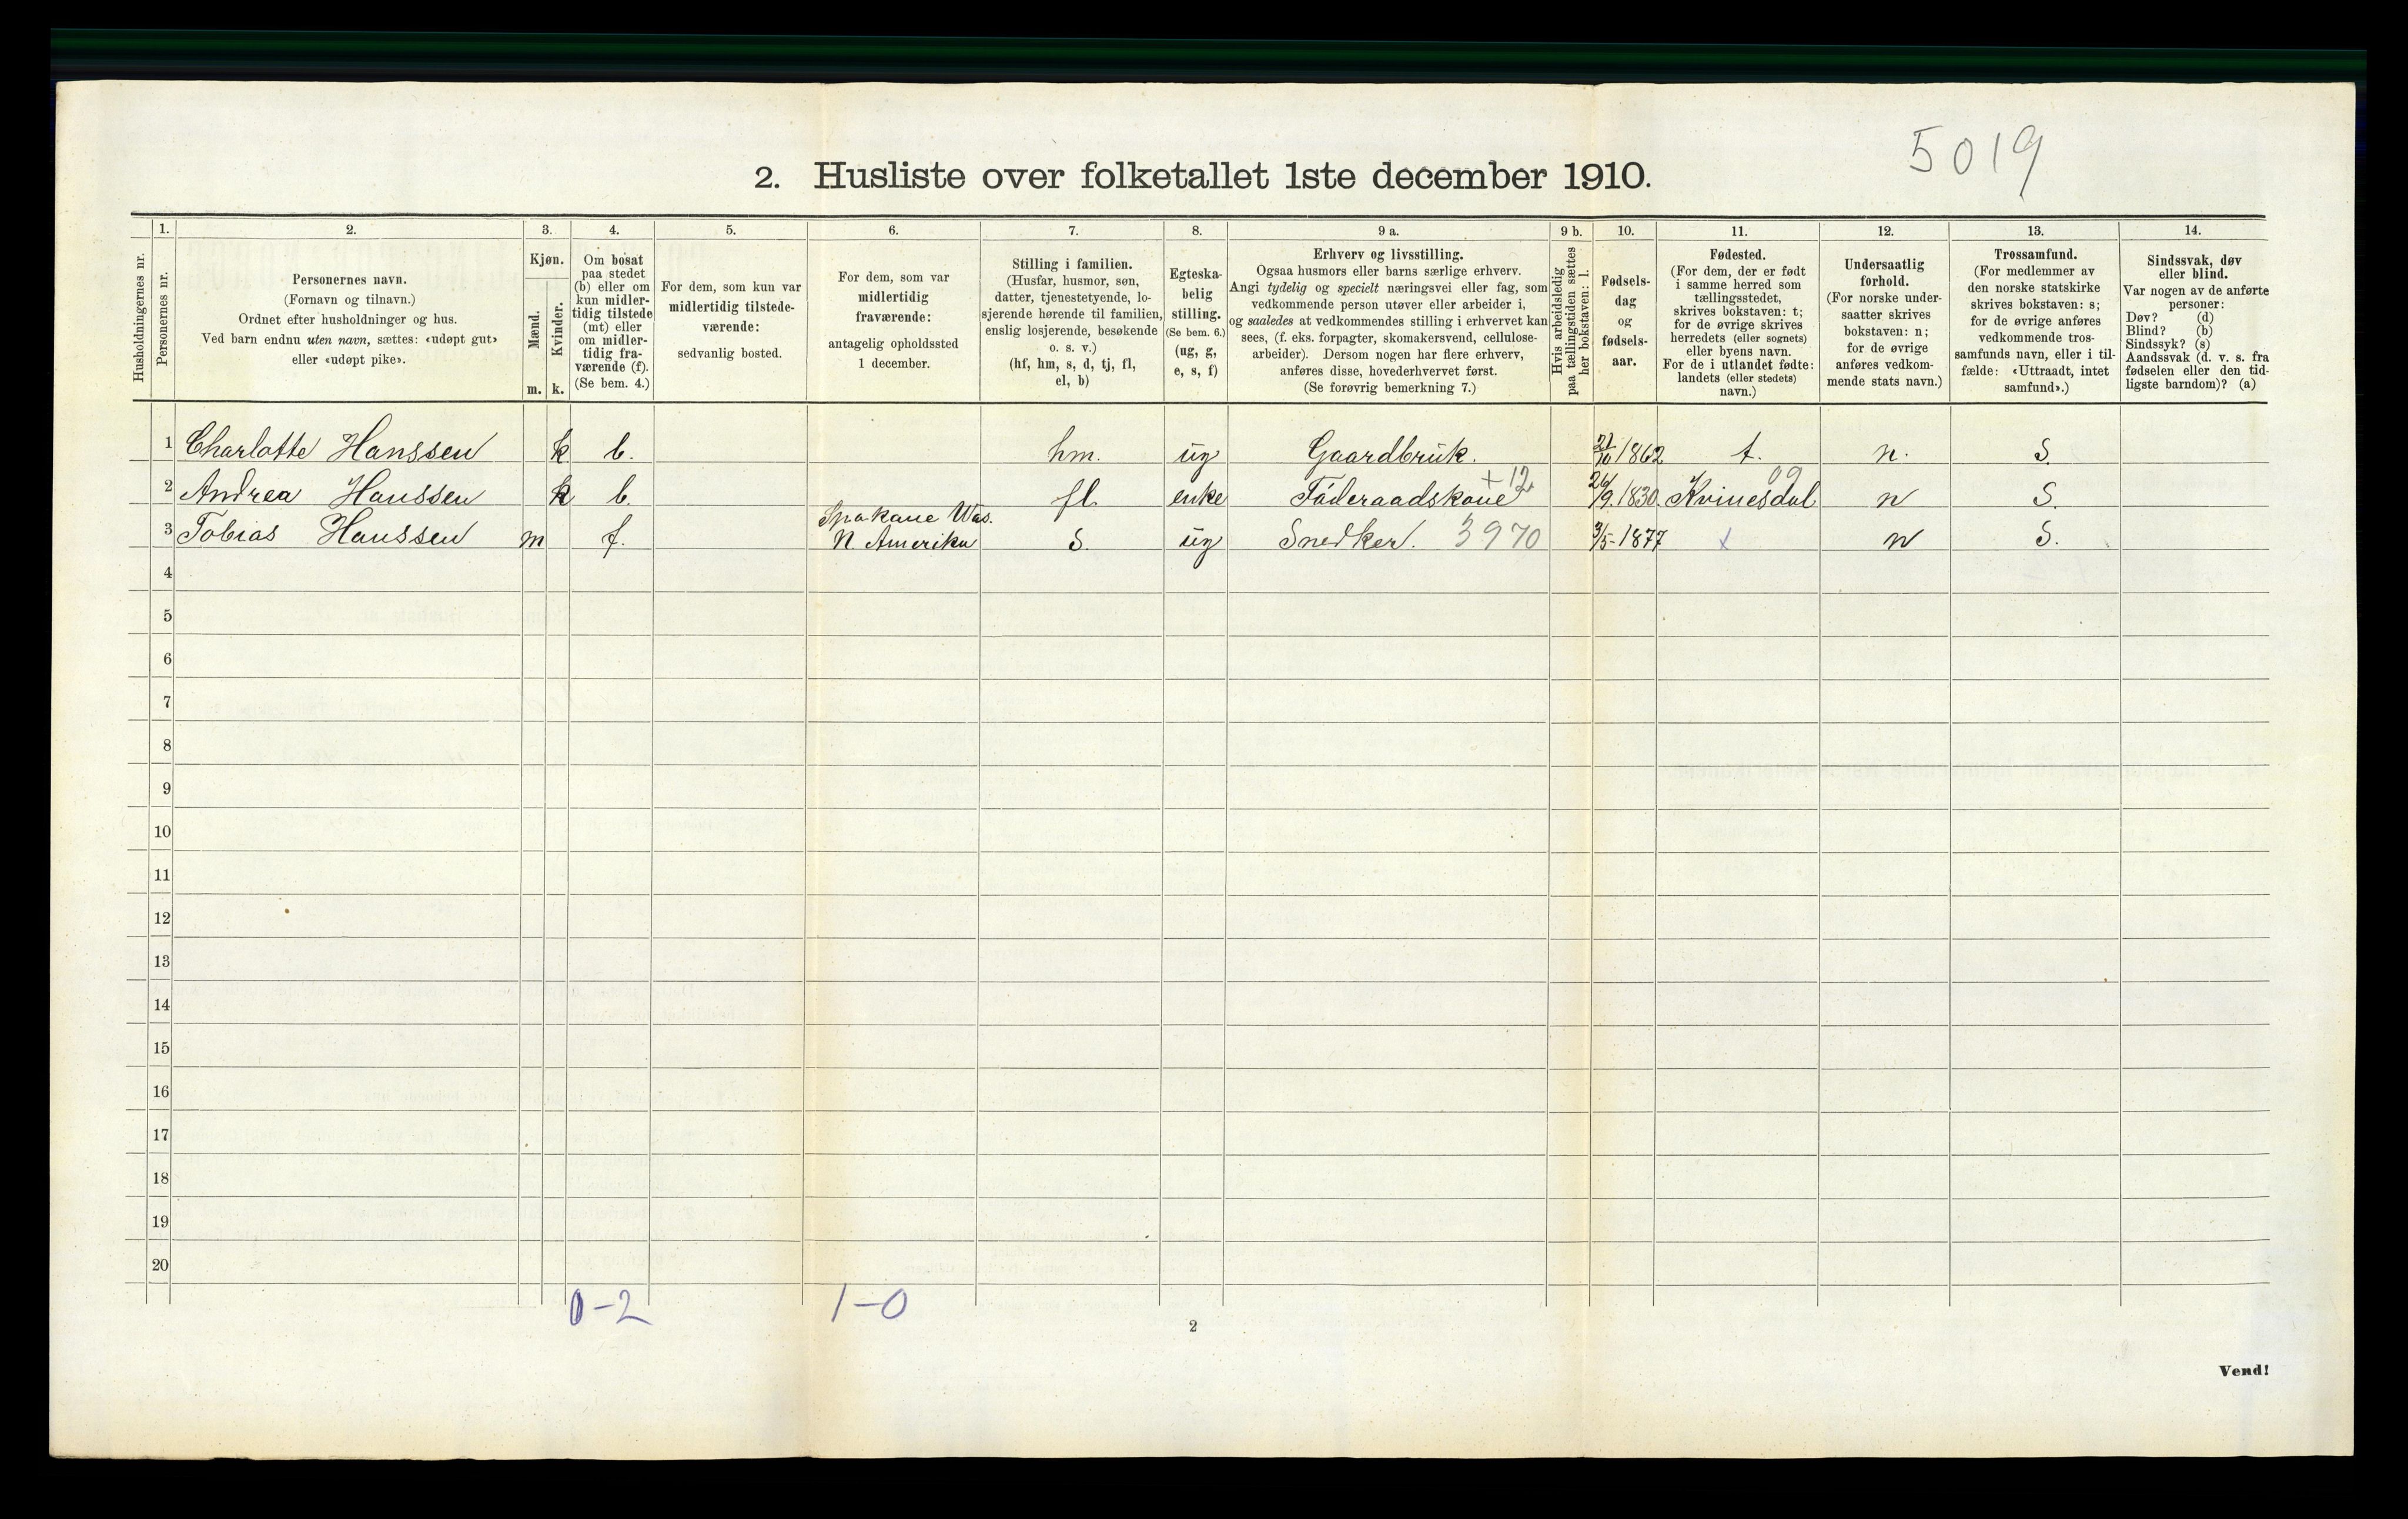 5019
2. Husliste over folketallet 1ste december 1910.
Husholdningernes nr.
1.
Personernes nr.
2.
Personernes navn.
(Fornavn og tilnavn.)
Ordnet efter husholdninger og hus.
Ved barn endnu uten navn, sættes: «udøpt gut»
eller «udøpt pike».
3.
Kjøn.
Mænd.
m.
Kvinder.
k.
4.
Om bosat
paa stedet
(b) eller om
kun midler-
tidig tilstede
(mt) eller
om midler-
tidig fra-
værende (f).
(Se bem. 4.)
5.
For dem, som kun var
midlertidig tilstede-
værende:
sedvanlig bosted.
6.
For dem, som var
midlertidig
fraværende:
antagelig opholdssted
1 december.
7.
Stilling i familien.
(Husfar, husmor, søn,
datter, tjenestetyende, lo-
sjerende hørende til familien,
enslig losjerende, besøkende
o. s. v.)
(hf, hm, s, d, tj, fl,
el, b)
8.
Egteska-
belig
stilling.
(Se bem. 6.)
(ug, g,
e, s, f)
9 a.
Erhverv og livsstilling.
Ogsaa husmors eller barns særlige erhverv.
Angi tydelig og specielt næringsvei eller fag, som
vedkommende person utøver eller arbeider i,
og saaledes at vedkommendes stilling i erhvervet kan
sees, (f. eks. forpagter, skomakersvend, cellulose-
arbeider). Dersom nogen har flere erhverv,
anføres disse, hovederhvervet først.
(Se forøvrig bemerkning 7.)
9 b.
Hvis arbeidsledig
paa tællingstiden sættes
her bokstaven: l.
10.
Fødsels-
dag
og
fødsels-
aar.
11.
Fødested.
(For dem, der er født
i samme herred som
tællingsstedet,
skrives bokstaven: t;
for de øvrige skrives
herredets (eller sognets)
eller byens navn.
For de i utlandet fødte:
landets (eller stedets)
navn.)
12.
Undersaatlig
forhold.
(For norske under-
saatter skrives
bokstaven: n;
for de øvrige
anføres vedkom-
mende stats navn.)
13.
Trossamfund.
(For medlemmer av
den norske statskirke
skrives bokstaven: s;
for de øvrige anføres
vedkommende tros-
samfunds navn, eller i til-
fælde: «Uttraadt, intet
samfund».)
14.
Sindssvak, døv
eller blind.
Var nogen av de anførte
personer:
Døv? (d)
Blind? (b)
Sindssyk? (s)
Aandssvak (d. v. s. fra
fødselen eller den tid-
ligste barndom)? (a)
1 Charlotte Hanssen k b. hm. ug Gaardbruk. 1862 t. n. S.
+ 12 09
2 Andrea Hanssen k b. fl enke Föderaadskone 26/9. 1830. Kvinesdal n S.
Spokane Was.
3 Tobias Hanssen m f. N. Amerika S. ug Snedker. 3970 3/5-1877 n S.
4
5
6
7
8
9
10
11
12
13
14
15
16
17
18
19
20
0-2 1-0
2
Vend!